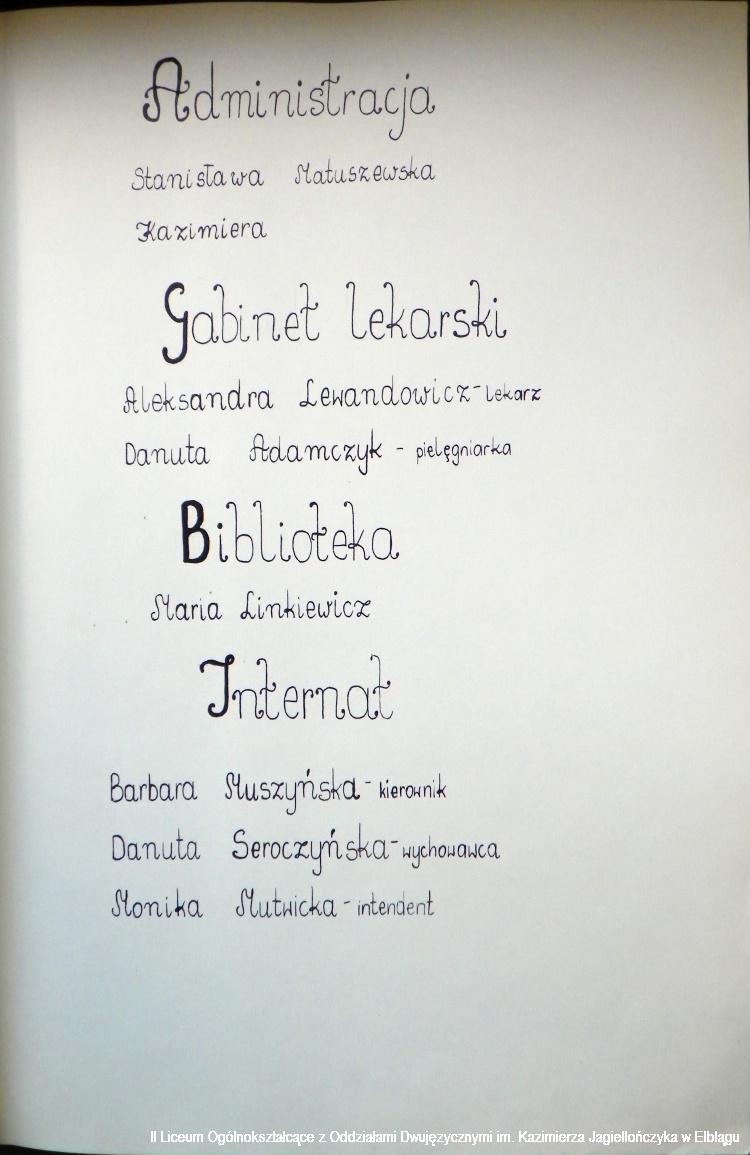 Administracja
Stanisława Matuszewska
Kazimiera
Gabinet lekarski
Aleksandra Lewandowicz - lekarz
Danuta Adamczyk - pielęgniarka
Biblioteka
Maria Linkiewicz
Internat
Barbara Muszyńska - kierownik
Danuta Seroczyńska - wychowawca
Monika Mutwicka - intendent
II Liceum Ogólnokształcące z Oddziałami Dwujęzycznymi im. Kazimierza Jagiellończyka w Elblągu